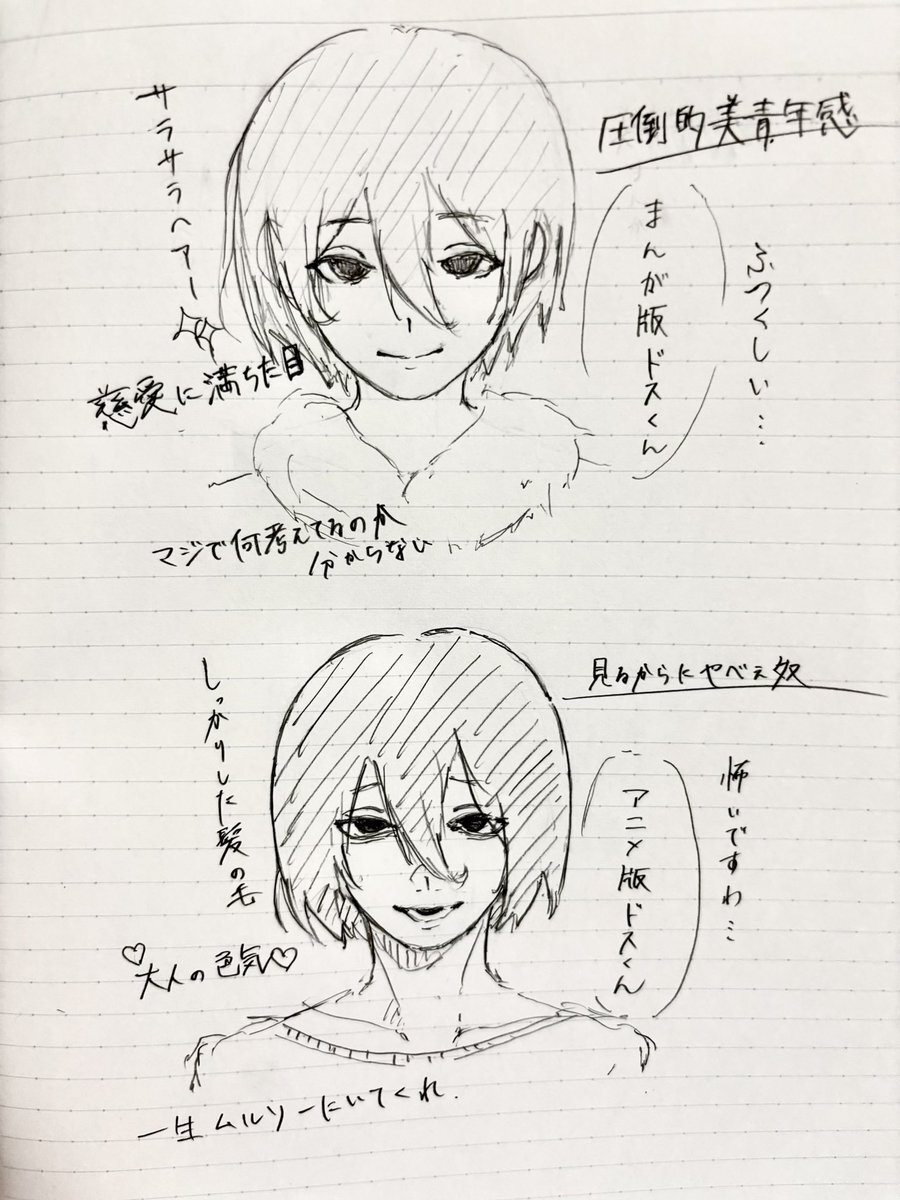 サラサラヘアー
圧倒的美青年感
まんが版ドスくん
ふつくしい…
慈愛に満ちた目
マジで何考えてるのか
分からない
しっかりした髪の毛
見るからにやべえ奴
アニメ版ドスくん
怖いですわ…
♡大人の色気♡
一生ムルソーにいてくれ.